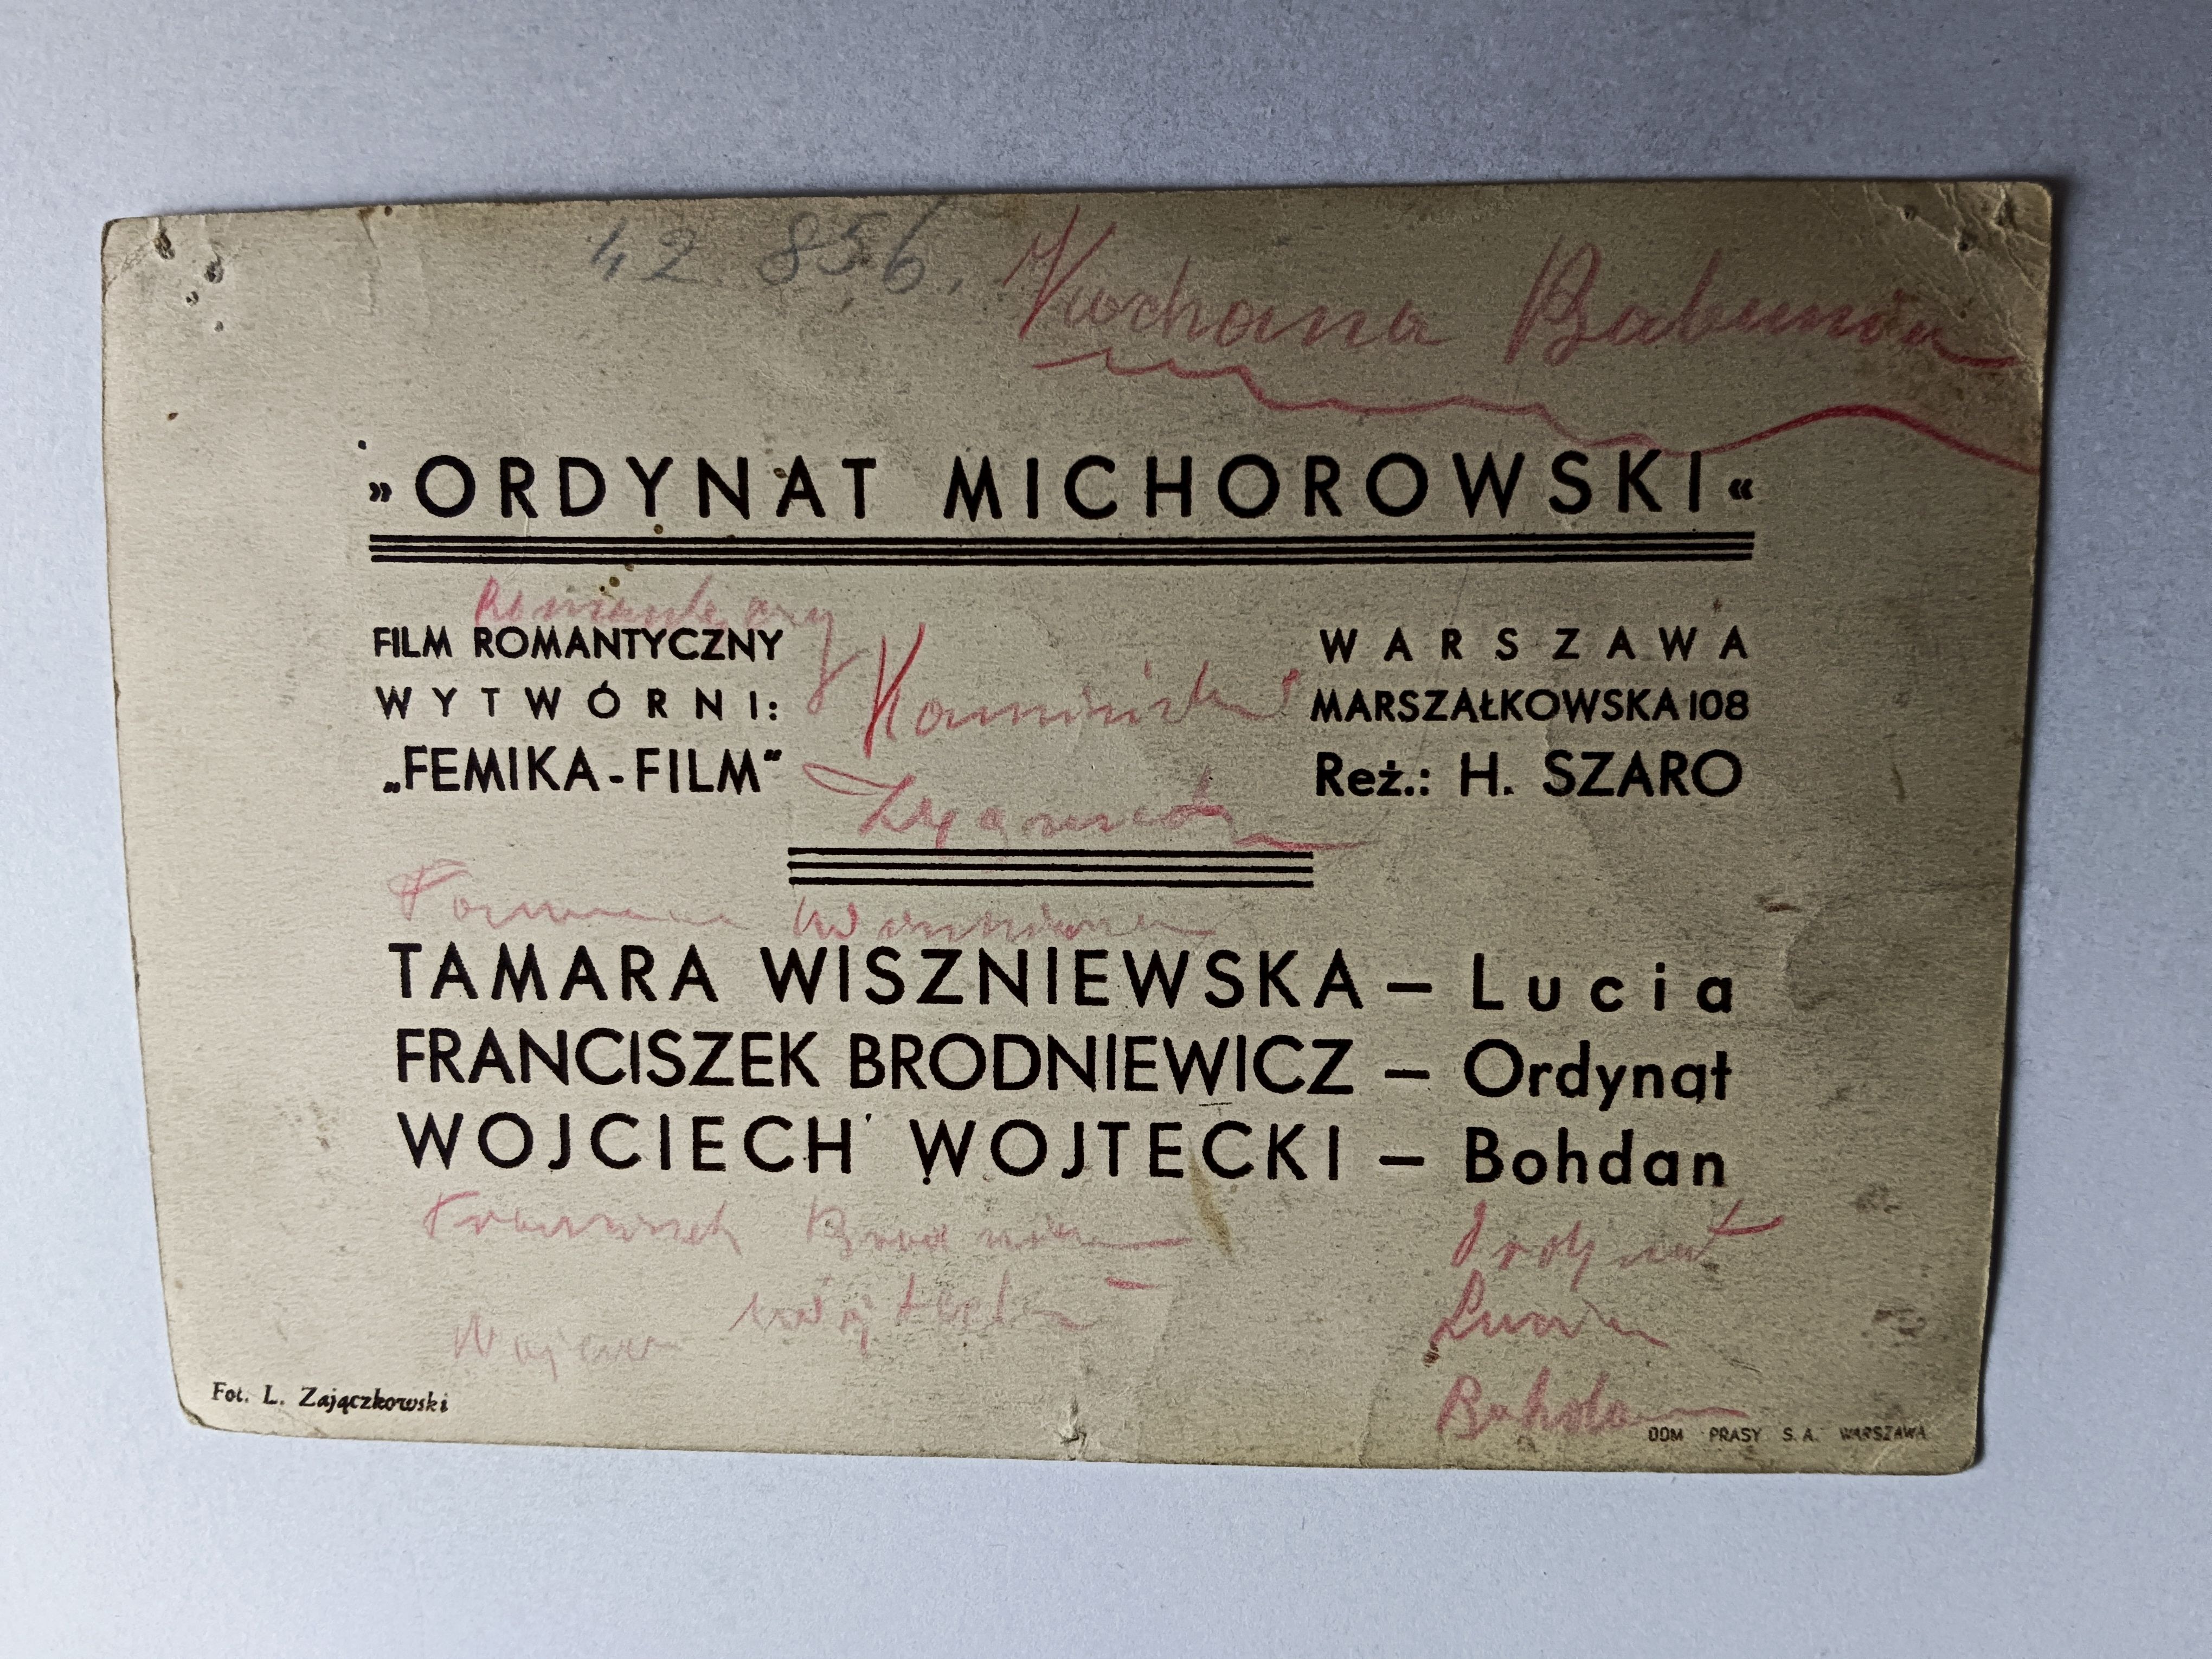 42 856. Kochana Babunia
»ORDYNAT MICHOROWSKI«
FILM ROMANTYCZNY
WYTWÓRNI:
„FEMIKA-FILM”
Kamiński
Zygmunt
WARSZAWA
MARSZAŁKOWSKA 108
Reż.: H. SZARO
TAMARA WISZNIEWSKA – Lucia
FRANCISZEK BRODNIEWICZ – Ordynat
WOJCIECH WOJTECKI – Bohdan
Lucia
Bohdan
Fot. L. Zajączkowski
DOM PRASY S. A. WARSZAWA